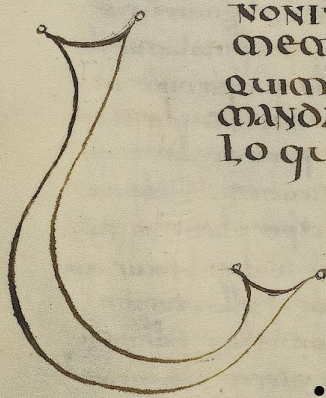 NONI
MEM
QUIM
MANDA
Lo qu